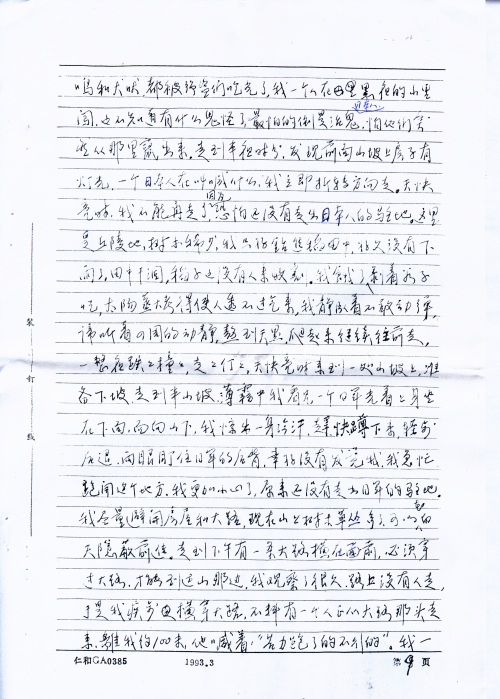 鸣和犬吠,都被强盗们吃光了,我一个人在黑夜的山里
闯,也不知道有什么鬼怪了,最怕的倒是活鬼,怕他们突
然从那里露出来。走到半夜时分,发现前面山坡上房子有
日军人
灯光,一个日本人在叫喊什么,我立即折转方向走。天快
因为
亮时,我不能再走了,恐怕还没有走出日本人的驻地。这里
是丘陵地,树木稀少,我只好钻进稻田中,好久没有下
雨了,田中干涸,稻子还没有人来收割。我饿了剥着谷子
吃,太阳蒸烤得使人透不过气来,我静卧着不敢动弹,
谛听着四围的动静,熬到天黑,爬起来继续往前走,
一整夜跌跌撞撞,走走停停,天快亮时来到一处山坡上,准
备下坡走到半山坡,薄雾中我看见一个日军光着上身坐
在下面,面向山下,我惊出一身冷汗,赶快蹲下来,轻步
后退,两眼盯住日军的后背,幸好没有发觉我,我急忙
跑开这个地方,我更加小心了,原来还没有走出日军的驻地。
我尽量避开房屋和大路,现在山上树木草丛多了,可以白
天隐蔽前进。走到下午有一条大路横在面前,必须穿
过大路,才能到达山那边,我观察了很久,路上没有人走,
于是我疾步横穿大路,不料有一个人正从大路那头走
来,离我约100米,他喊着:"
我一
仁和GA0385 1993.3 第9页
装
订
线